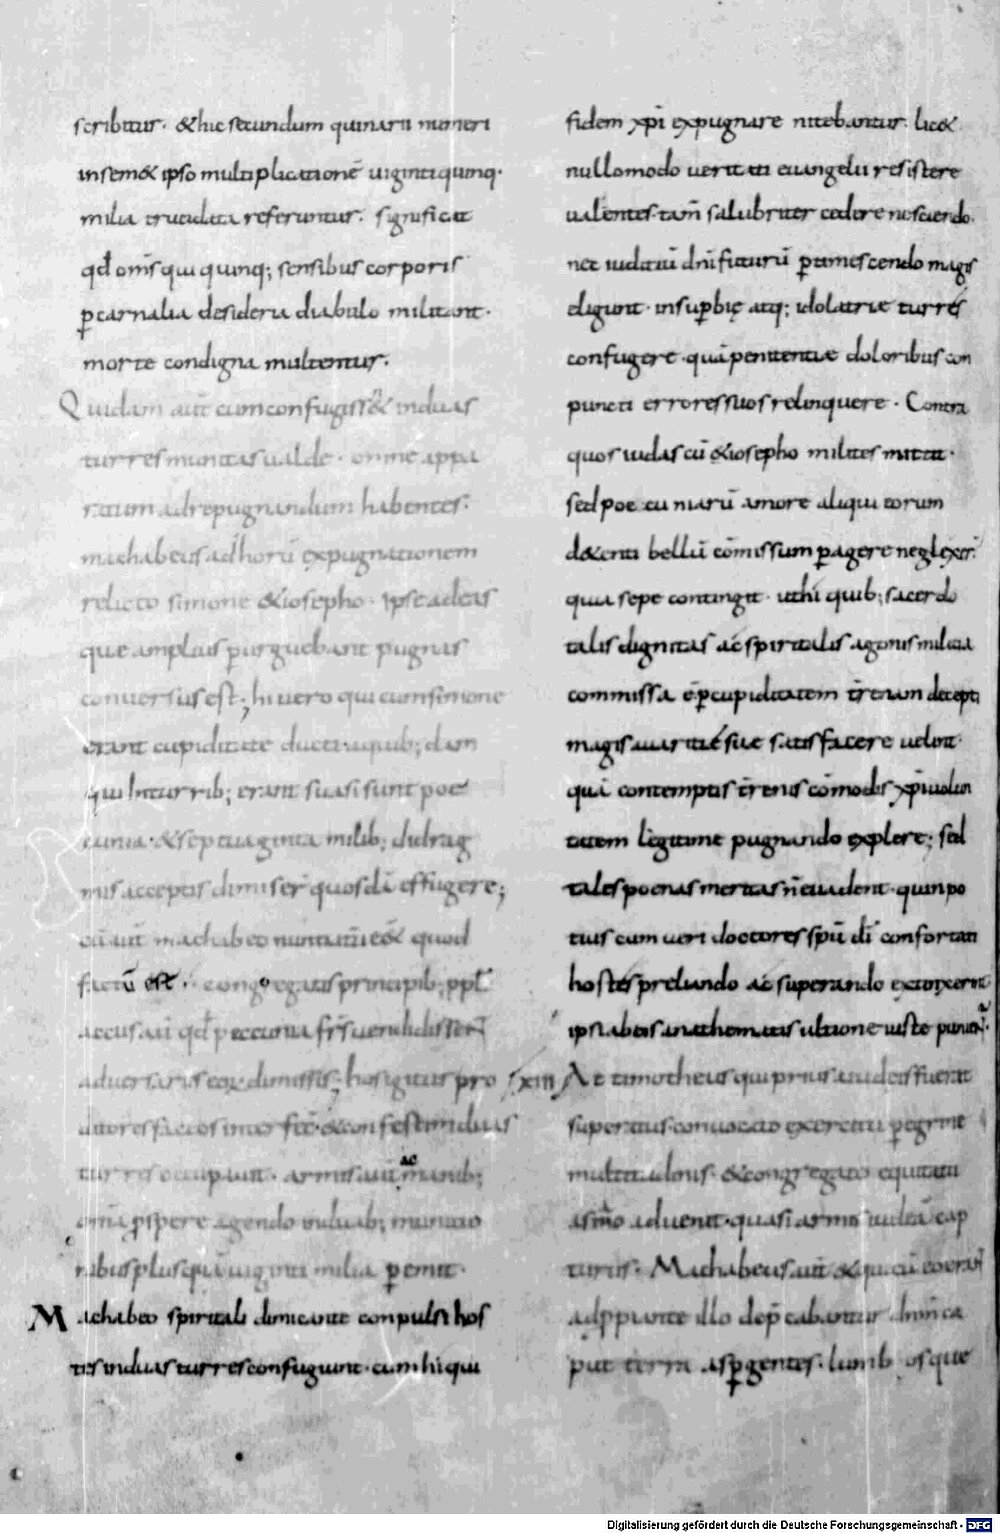 scribitur. & hic secundum quinarii numeri
insem& ipso multiplicationē uigintiquinq·
milia trucidata referuntur. significat
qđ omīs qui quinq; sensibus corporis
p̱carnalia desideria diabulo militant·
morte condigna multentur.
Quidam aut̄ cum confugiss& induas
turres munitas ualde· omne appa
ratum adrepugnandum habentes·
machabeus ad horū expugnationem
relicto simone &iosepho· ipse ad eas
que amplius p̱urguebant pugnas
conuersus est; hi uero qui cum simone
erant cupiditate ducti· aquib; dam
qui Inturrib; erant suasi sunt poe
cunia· &septuaginta milib; didrag
mis acceptis dimiser̄ quosdā effugere;
cū aut̄ machabeo nuntiatū ē& quod
factū est· congregatis principib; ppl̄i
accusauit qđ peccunia fr̄s uendidissent
aduersariis eoꝝ dimissis; hos igitur pro
ditores factos interfēc̄·&confestim duas
turres occupauit· armis aut̄ ac manib;
omīa p̱spere agendo induab; munitio
nibus plusquā uiginti milia p̱emit·
Machabeo spiritali dimicante conpulsi hos
tes induas turres confugiunt· cum hi qui
fidem xp̄i expugnare nitebantur. lic&
nullomodo ueritati euangelii resistere
ualentes· tam̄ salubriter cedere nesciendo·
nec iudiciū dn̄i futurū p̱timescendo magis
eligunt· insup̱bię atq; idolatriæ turres
confugere· quā penitentiæ doloribus con
puncti errores suos relinquere· Contra
quos iudas cū &iosepho milites mittit·
sed poecuniarū amore aliqui eorum
d&enti bellū cōmissum p̱agere neglexer̄
quia sepe contingit· uthi quib; sacerdo
talis dignitas ac spiritalis agonis militia
commissa ē p̱cupiditatem trēnan decepti
magis auaritiē suæ satisfacere uelint·
quā contemptis trēnis cōmodis xp̄i uolun
tatem legitime pugnando explere; sed
tales poenas meritas n̄ euadent· quin po
tius cum ueri doctores sp̄u dī confortati
hostes preliando ac superando extorxerint
ipsi abeis anathematis ultione iuste puniant̄
xiii At timotheus qui prius a iudeis fuerat
superatus· conuocato exercitu p̱egrine
multitudinis· &congregato equitatu
asiāno aduenit· quasi armis iudeā cap
turus· Machabeus aut̄ &qui cū eo erant
adp̱p̱iante illo dep̄cabantur dn̄m ca
put terra asp̱gentes· lumbosque